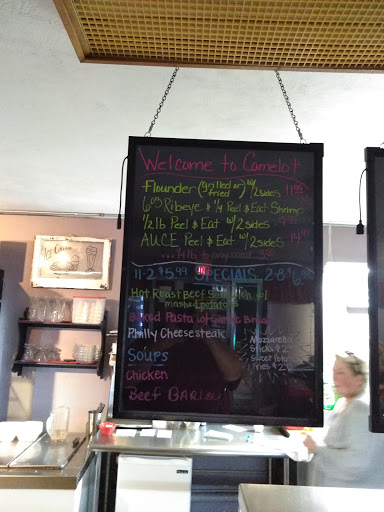 Welcome to Camelot
Flounder (grilled or fried) w/ 2 sides 11.95
6oz Ribeye & 1/4 Peel & Eat Shrimp
1/2 lb Peel & Eat w/ 2 sides
AUCE Peel & Eat w/ 2 sides 14.95
11-2 $5.99 SPECIALS 2-8 $6.
Hot Roast Beef Sandwich w/
mashed potato
Baked Pasta w/ Garlic Bread
Philly Cheesesteak
Mozzarella
Sticks $2
Sweet Potato
Fries $2
Soups
Chicken
Beef Barley
Ice Cream